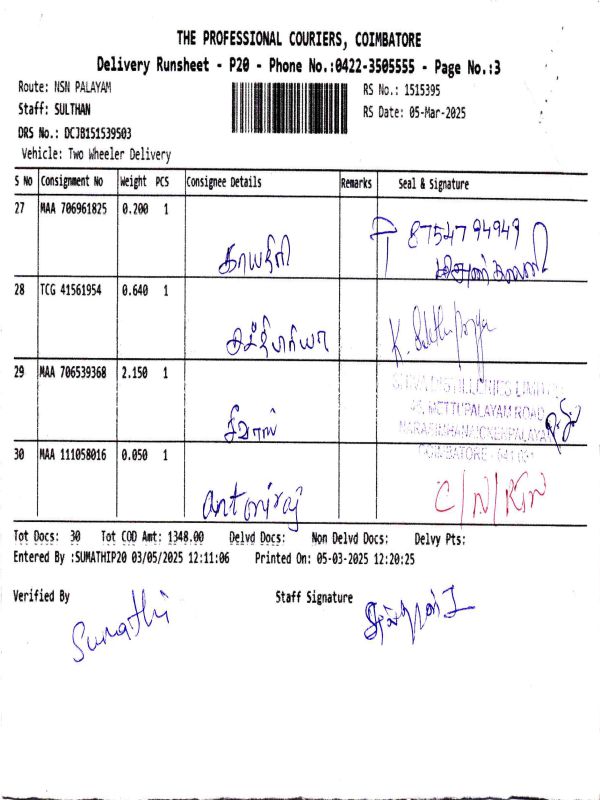 THE PROFESSIONAL COURIERS, COIMBATORE
Delivery Runsheet - P20 - Phone No.:0422-3505555 - Page No.:3
Route: NSN PALAYAM
RS No.: 1515395
Staff: SULTHAN
RS Date: 05-Mar-2025
DRS No.: DCJB151539503
Vehicle: Two Wheeler Delivery
S No Consignment No Weight PCS Consignee Details Remarks Seal & Signature
27 MAA 706961825 0.200 1
8754794949
காயத்ரி
28 TCG 41561954 0.640 1
சத்தியபிரியா
K. Sathiyapriya
29 MAA 706539368 2.150 1
SHIVA DISTILLERIES LIMITED
METTUPALAYAM ROAD
சிவாஸ்
30 MAA 111058016 0.050 1
COIMBATORE - 641 031
antoniraj
Tot Docs: 30 Tot COD Amt: 1348.00 Delvd Docs: Non Delvd Docs: Delvy Pts:
Entered By :SUMATHIP20 03/05/2025 12:11:06 Printed On: 05-03-2025 12:20:25
Verified By Staff Signature
Sumathi